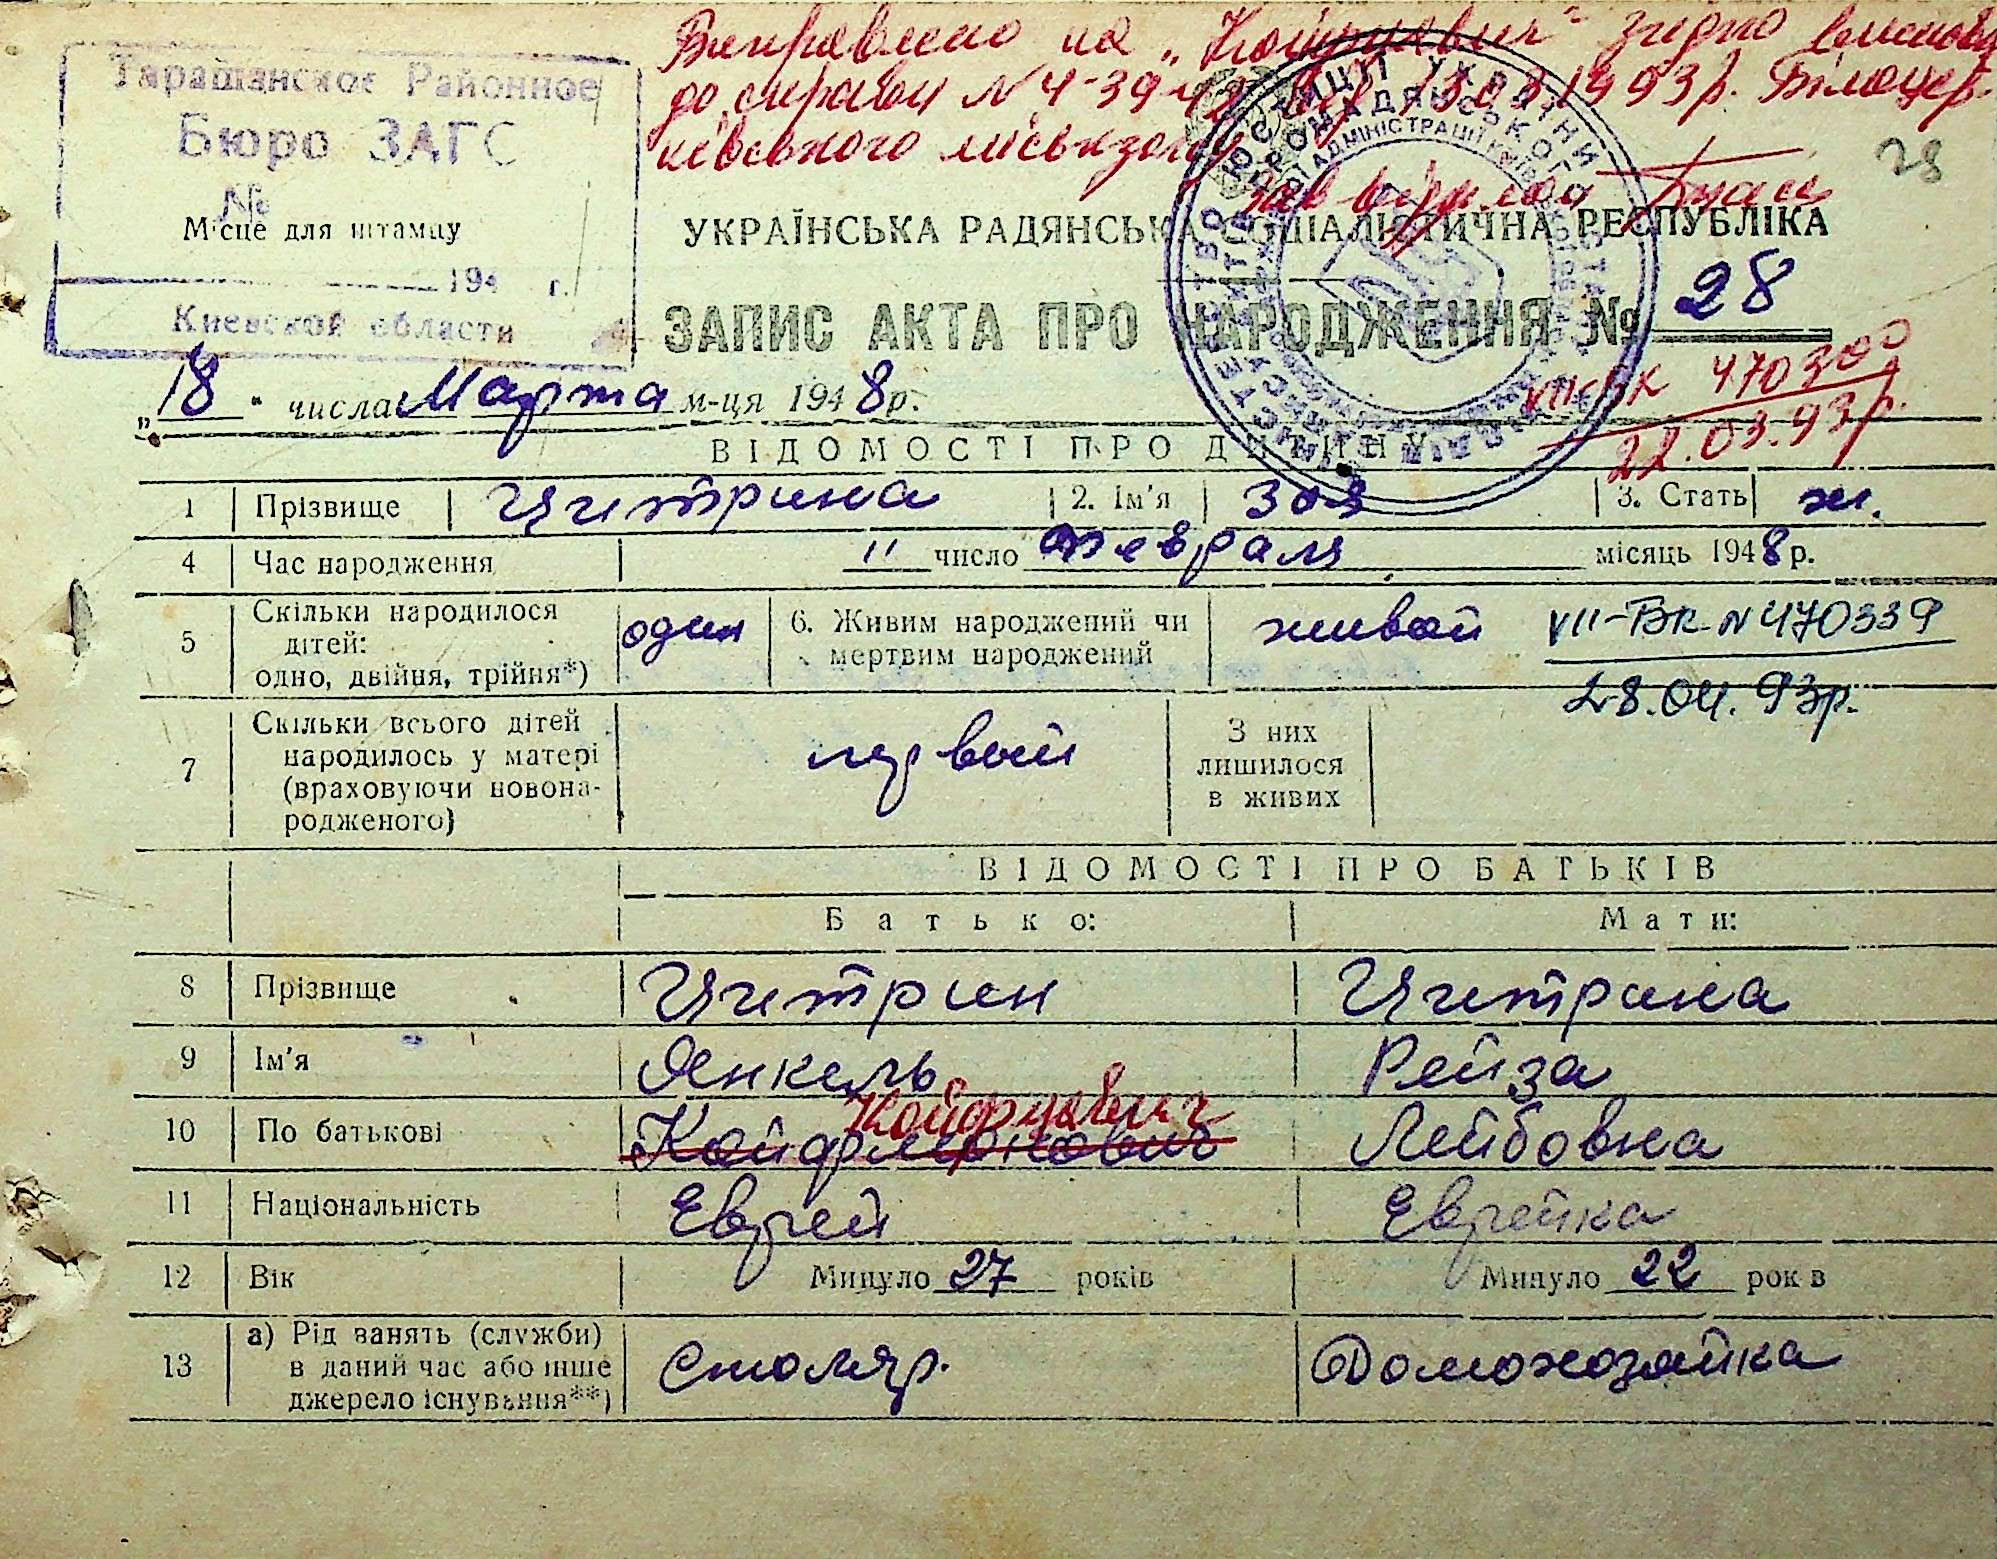 Виправлено на „Койфиавич" згідно висновку
до справи № 4-39
1993р. Білоцер-
ківського міськзагсу
28
Таращанское Районное
Бюро ЗАГС
№
Місце для штампу
194 г.
Киевской области
УКРАЇНСЬКА РАДЯНСЬКА СОЦІАЛІСТИЧНА РЕСПУБЛІКА
ЗАПИС АКТА ПРО НАРОДЖЕННЯ № 28
VII-БК 470300
22.03.93р.
„18" числа Марта м-ця 1948р.
ВІДОМОСТІ ПРО ДИТИНУ
1 Прізвище Цитрина 2. Ім'я Зоя 3. Стать ж.
4 Час народження 11 число Февраля місяць 1948р.
5 Скільки народилося дітей: одно, двійня, трійня*) один 6. Живим народжений чи мертвим народжений живой
VII-БК №470339
28.04.93р.
7 Скільки всього дітей народилось у матері (враховуючи новонародженого) первый З них лишилося в живих
ВІДОМОСТІ ПРО БАТЬКІВ
Батько: Мати:
8 Прізвище Цитрин Цитрина
9 Ім'я Янкель Рейза
10 По батькові Койфманович Лейбовна
11 Національність Еврей Еврейка
12 Вік Минуло 27 років Минуло 22 рок в
13 а) Рід занять (служби) в даний час або інше джерело існування**) Столяр. Домохозяйка